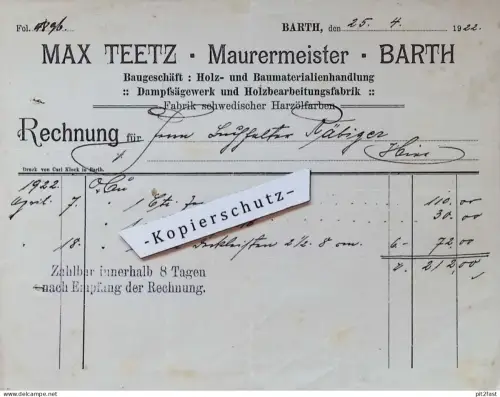 Fol. 4896.
BARTH, den 25. 4. 1922.
MAX TEETZ · Maurermeister · BARTH
Baugeschäft : Holz- und Baumaterialienhandlung
:: Dampfsägewerk und Holzbearbeitungsfabrik ::
Fabrik schwedischer Harzölfarben
Rechnung für Herrn Buchhalter Räbiger
Hier
Druck von Carl Block in Barth.
1922
April 7. 1 110.00
30.00
-Kopierschutz-
" 18. " Deckleisten 2 1/2. 8 cm. 6- 72.00
212,00
Zahlbar innerhalb 8 Tagen
nach Empfang der Rechnung.
www.delcampe.net
pitz2fast